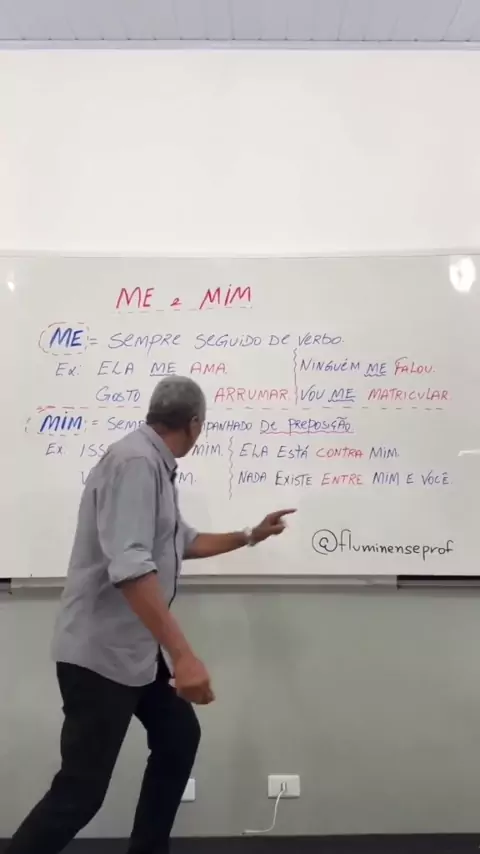 ME e MIM
ME = SEMPRE SEGUIDO DE VERBO.
Ex: ELA ME AMA.
GOSTO ARRUMAR.
NINGUÉM ME FALOU.
VOU ME MATRICULAR.
MIM = DE PREPOSIÇÃO
Ex. MIM.
ELA ESTÁ CONTRA MIM.
NADA EXISTE ENTRE MIM E VOCÊ.
@fluminenseprof